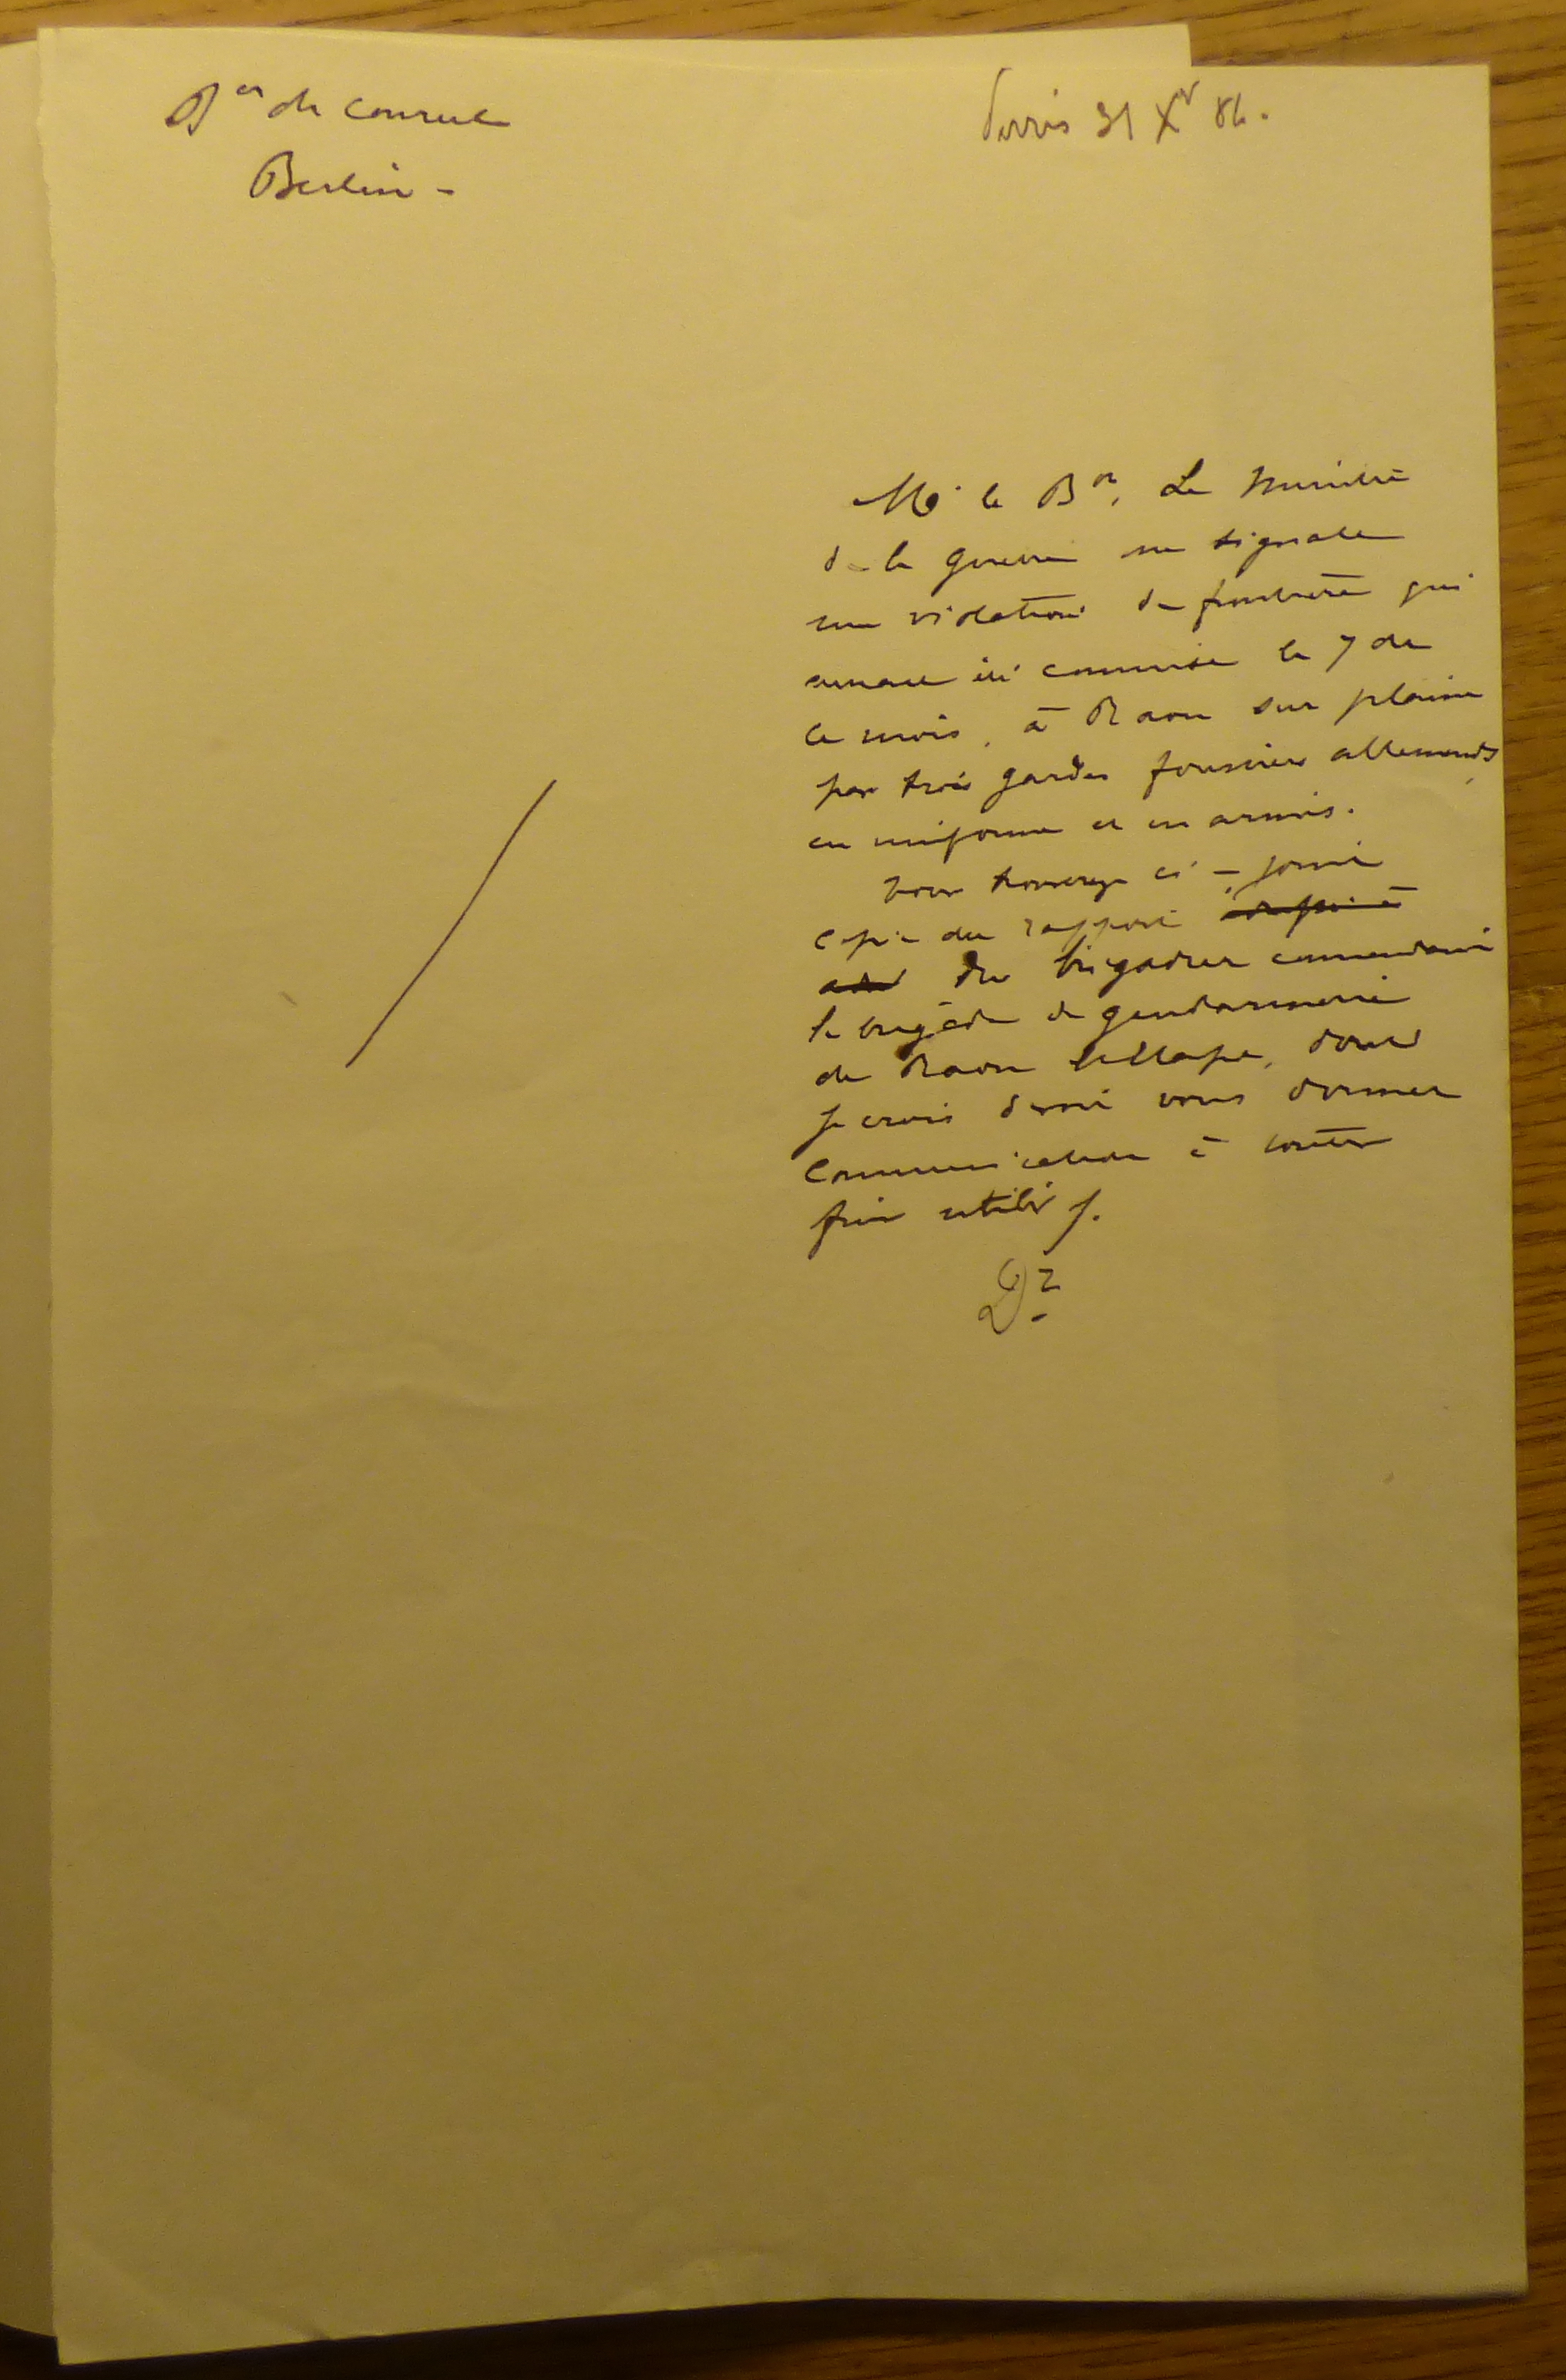 Bon de Courcel
Berlin -
Paris 31 Xr 84.
Mr le Bon, Le Ministre
de la guerre me signale
une violation de frontière qui
aurait été commise le 7 de
ce mois, à Raon sur plaine
par trois gardes forestiers allemands
en uniforme et en armes.
Vous trouverez ci-joint
copie du rapport
du brigadier commandant
la brigade de gendarmerie
de Raon l'Etape, dont
je crois devoir vous donner
communication à toutes
fins utiles.